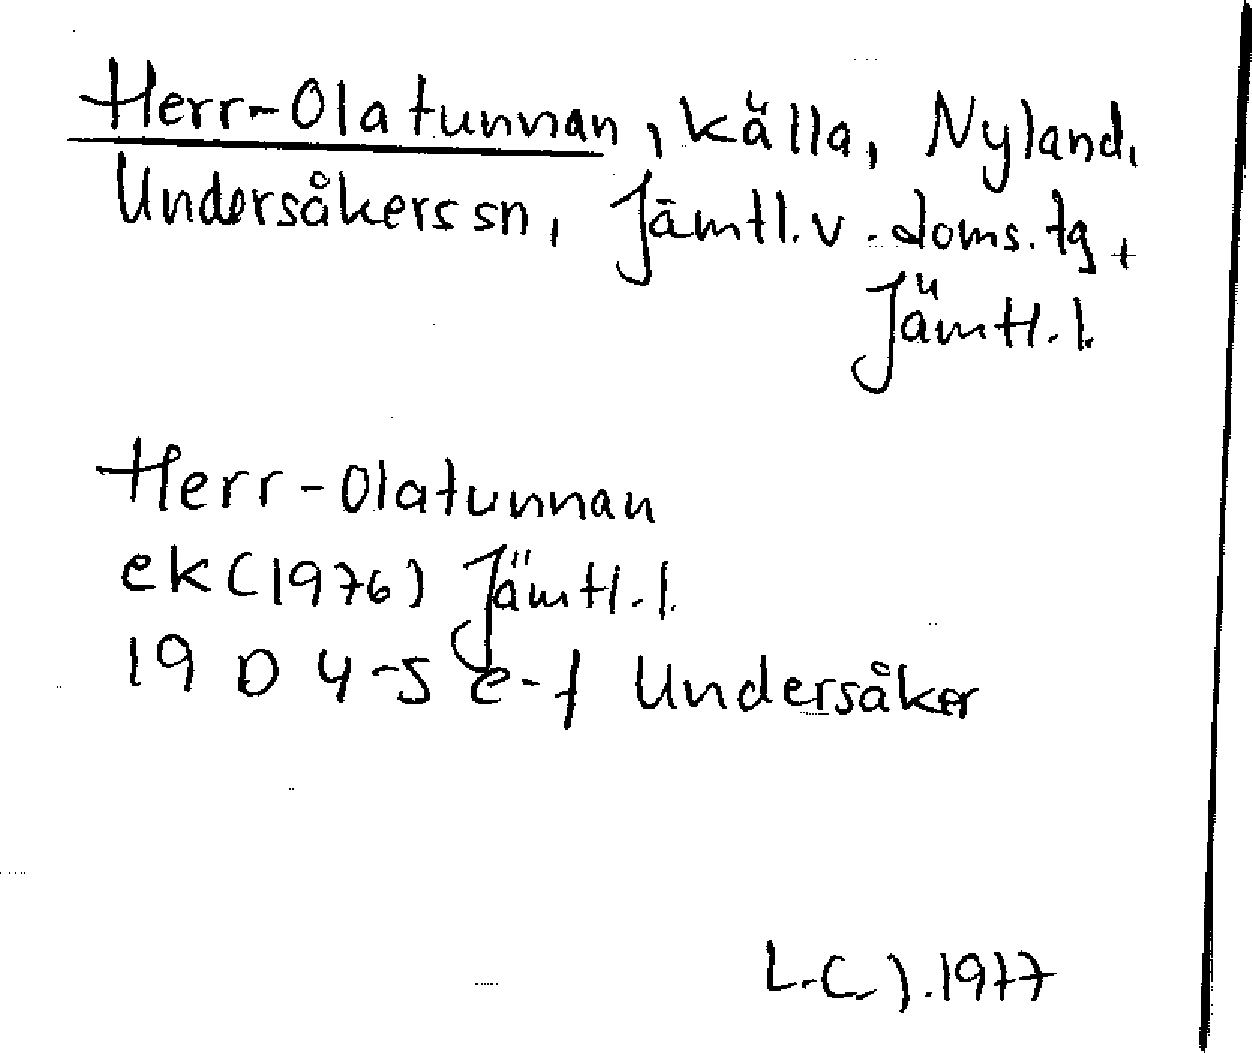 Herr-Olatunnan, källa, Nyland,
Undersåkers sn, Jämtl. v. doms. tg,
Jämtl. l.
Herr-Olatunnan
ek (1976) Jämtl. l.
19 D 4-5 e-f Undersåker
L.C.J. 1977